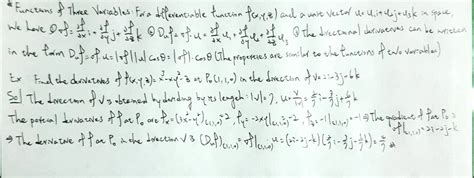 * Functions of Three Variables: For a differentiable function f(x,y,z) and a unit vector u = u₁i + u₂j + u₃k in space,
we have ① ∇f = ∂f/∂x i + ∂f/∂y j + ∂f/∂z k ② Duf = ∇f · u = ∂f/∂x u₁ + ∂f/∂y u₂ + ∂f/∂z u₃ ③ The directional derivatives can be written
in the form Duf = ∇f · u = |∇f||u| cosθ = |∇f| · cosθ (The properties are similar to the functions of two variables)
Ex Find the derivatives of f(x,y,z) = x³ - xy² - z at P₀(1,1,0) in the direction of v = 2i - 3j + 6k
Sol The direction of v is obtained by dividing by its length: |v| = 7, u = v/|v| = 2/7 i - 3/7 j + 6/7 k
The partial derivatives of f at P₀ are fx = (3x² - y²)|(1,1,0) = 2, fy = -2xy|(1,1,0) = -2, fz = -1|(1,1,0) = -1 ⇒ The gradient of f at P₀ is
∇f|(1,1,0) = 2i - 2j - k
⇒ The derivative of f at P₀ in the direction v is (Duf)|(1,1,0) = ∇f|(1,1,0) · u = (2i - 2j - k)(2/7 i - 3/7 j + 6/7 k) = 4/7